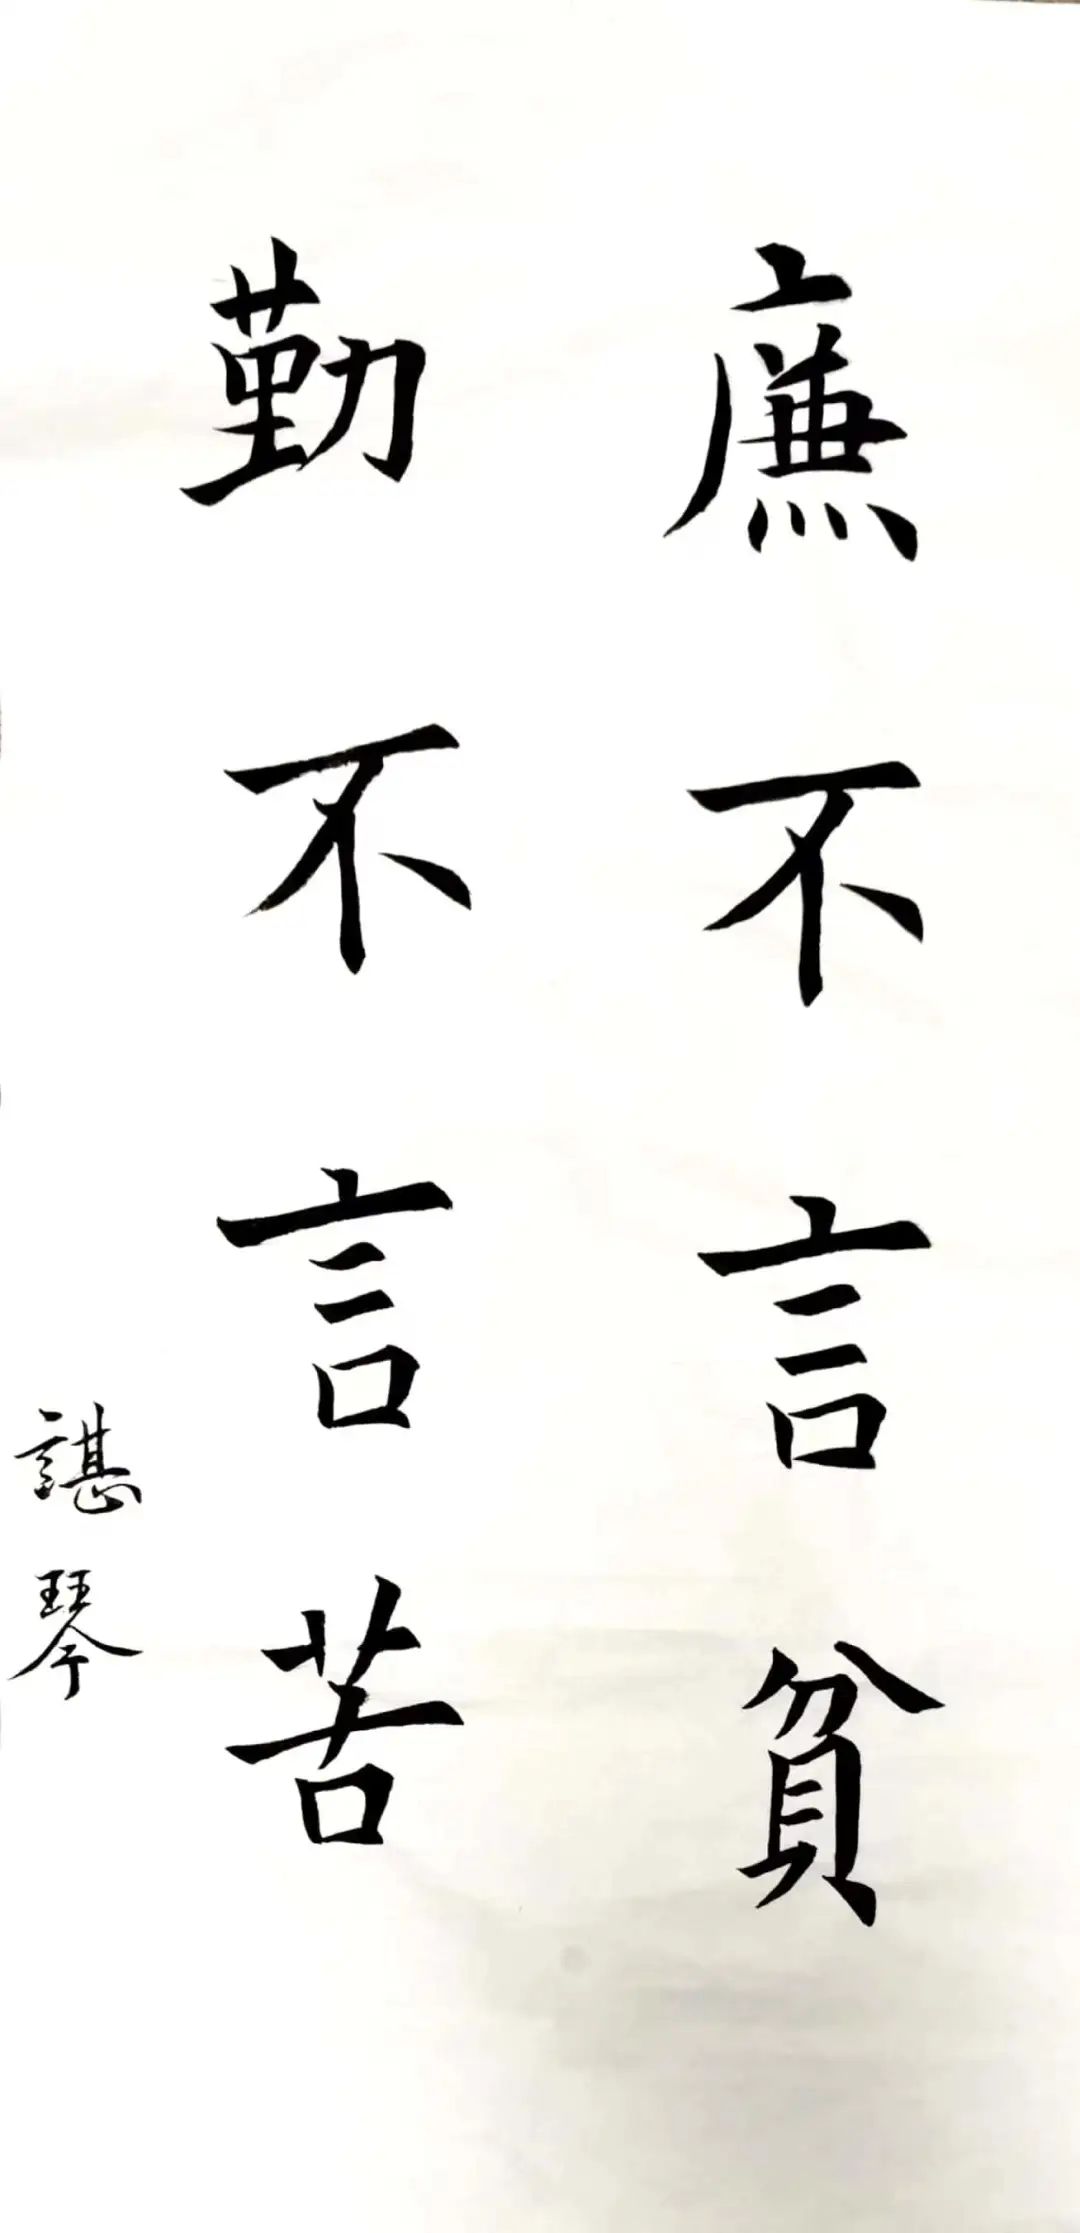 廉不言貧
勤不言苦
諶琴